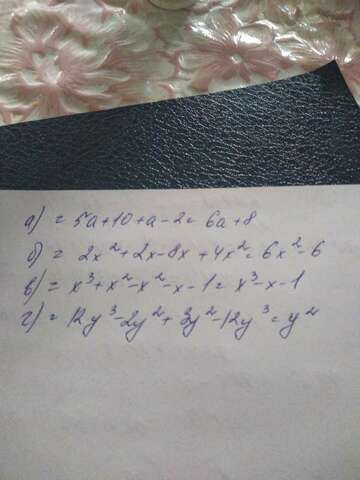 а) = 5a+10+a-2= 6a+8
б) = 2x²+2x-8x+4x²=6x²-6
в) = x³+x²-x²-x-1= x³-x-1
г) = 12y³-2y²+3y²-12y³= y²